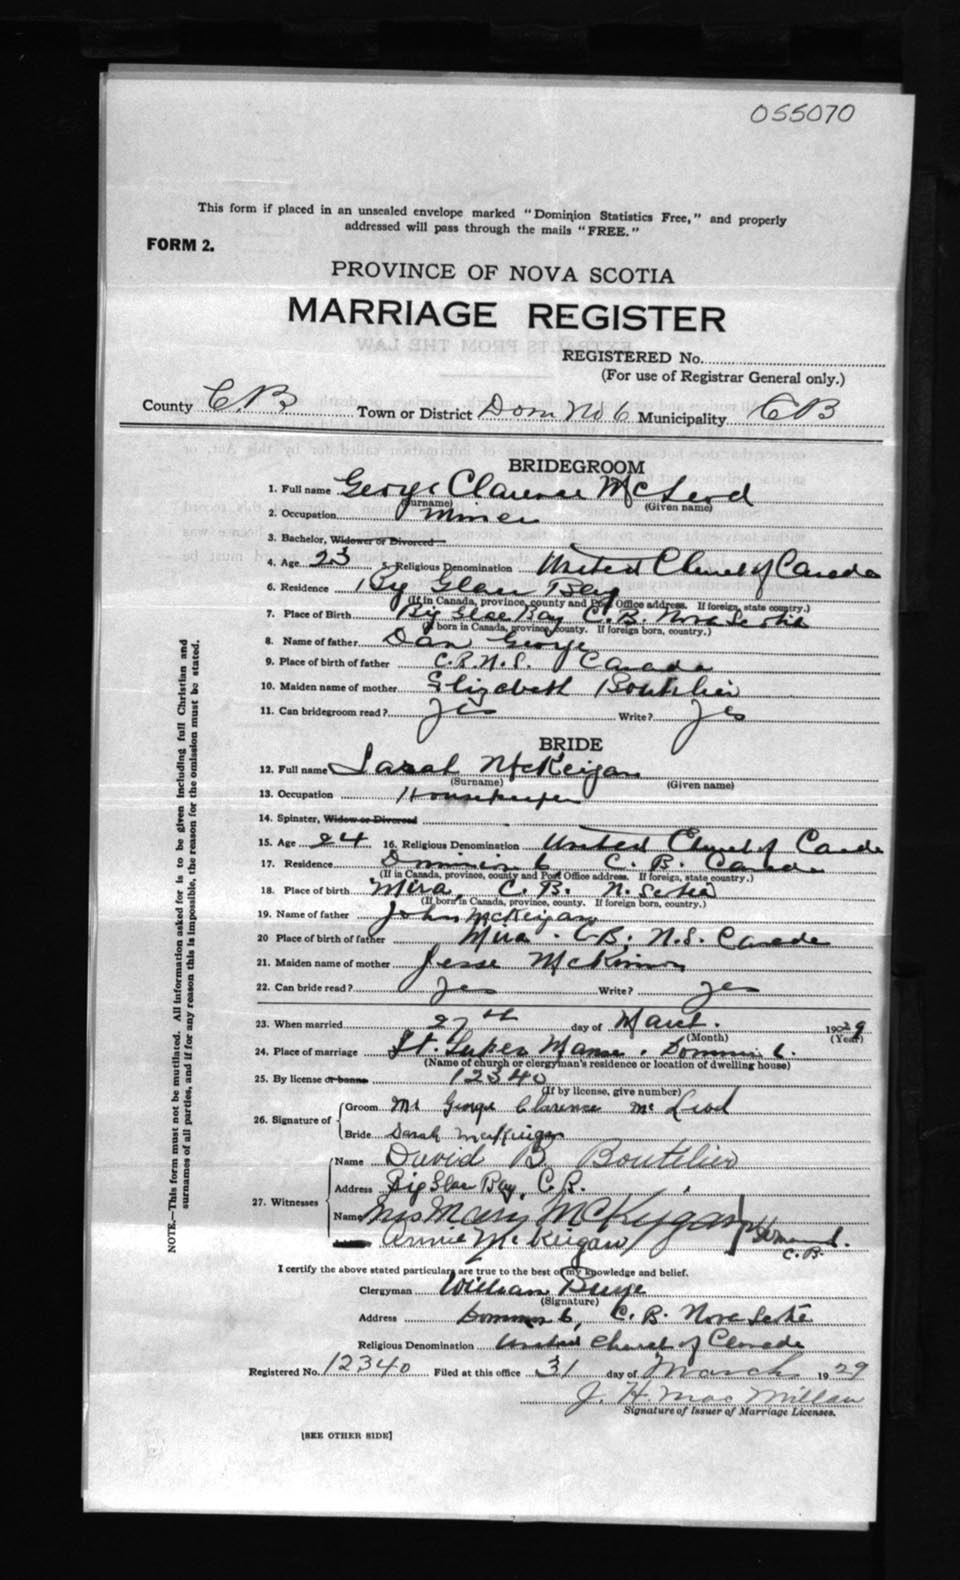 055070
This form if placed in an unsealed envelope marked "Dominion Statistics Free," and properly
addressed will pass through the mails "FREE."
FORM 2.
PROVINCE OF NOVA SCOTIA
MARRIAGE REGISTER
REGISTERED No.
(For use of Registrar General only.)
County C.B Town or District Dom No 6 Municipality CB
BRIDEGROOM
1. Full name George Clarence McLeod
(Surname) (Given name)
2. Occupation Miner
3. Bachelor, Widower or Divorced
4. Age 23 5. Religious Denomination United Church of Canada
6. Residence Big Glace Bay
(If in Canada, province, county and Post Office address. If foreign, state country.)
7. Place of Birth Big Glace Bay C.B. Nova Scotia
(If born in Canada, province, county. If foreign born, country.)
8. Name of father Dan George
9. Place of birth of father C.B. N.S. Canada
10. Maiden name of mother Elizabeth Boutilier
11. Can bridegroom read? yes Write? yes
BRIDE
12. Full name Sarah McKeigan
(Surname) (Given name)
13. Occupation Housekeeper
14. Spinster, Widow or Divorced
15. Age 24 16. Religious Denomination United Church of Canada
17. Residence Dominion 6 C. B. Canada
(If in Canada, province, county and Post Office address. If foreign, state country.)
18. Place of birth Mira, C.B. N. Scotia
(If born in Canada, province, county. If foreign born, country.)
19. Name of father John McKeigan
20 Place of birth of father Mira. C.B, N.S. Canada
21. Maiden name of mother Jesse McKinnon
22. Can bride read? yes Write? yes
23. When married 27th day of March. 1929
(Month) (Year)
24. Place of marriage St. Lukes Manse, Dominion 6.
(Name of church or clergyman's residence or location of dwelling house)
25. By license or banns 12340
(If by license, give number)
26. Signature of Groom Mr George Clarence Mc Leod
Bride Sarah McKeigan
27. Witnesses Name David B Boutilier
Address Big Glace Bay, C.B.
Name Mrs Mary McKeigan
Annie McKeigan
C.B.
I certify the above stated particulars are true to the best of my knowledge and belief.
Clergyman William
(Signature)
Address Dominion 6, C. B. Nova Scotia
Religious Denomination United Church of Canada
Registered No. 12340 Filed at this office 31 day of March 1929
J. H. MacMillan
Signature of Issuer of Marriage Licenses.
[SEE OTHER SIDE]
NOTE.—This form must not be mutilated. All information asked for is to be given including full Christian and
surnames of all parties, and if for any reason this is impossible, the reason for the omission must be stated.